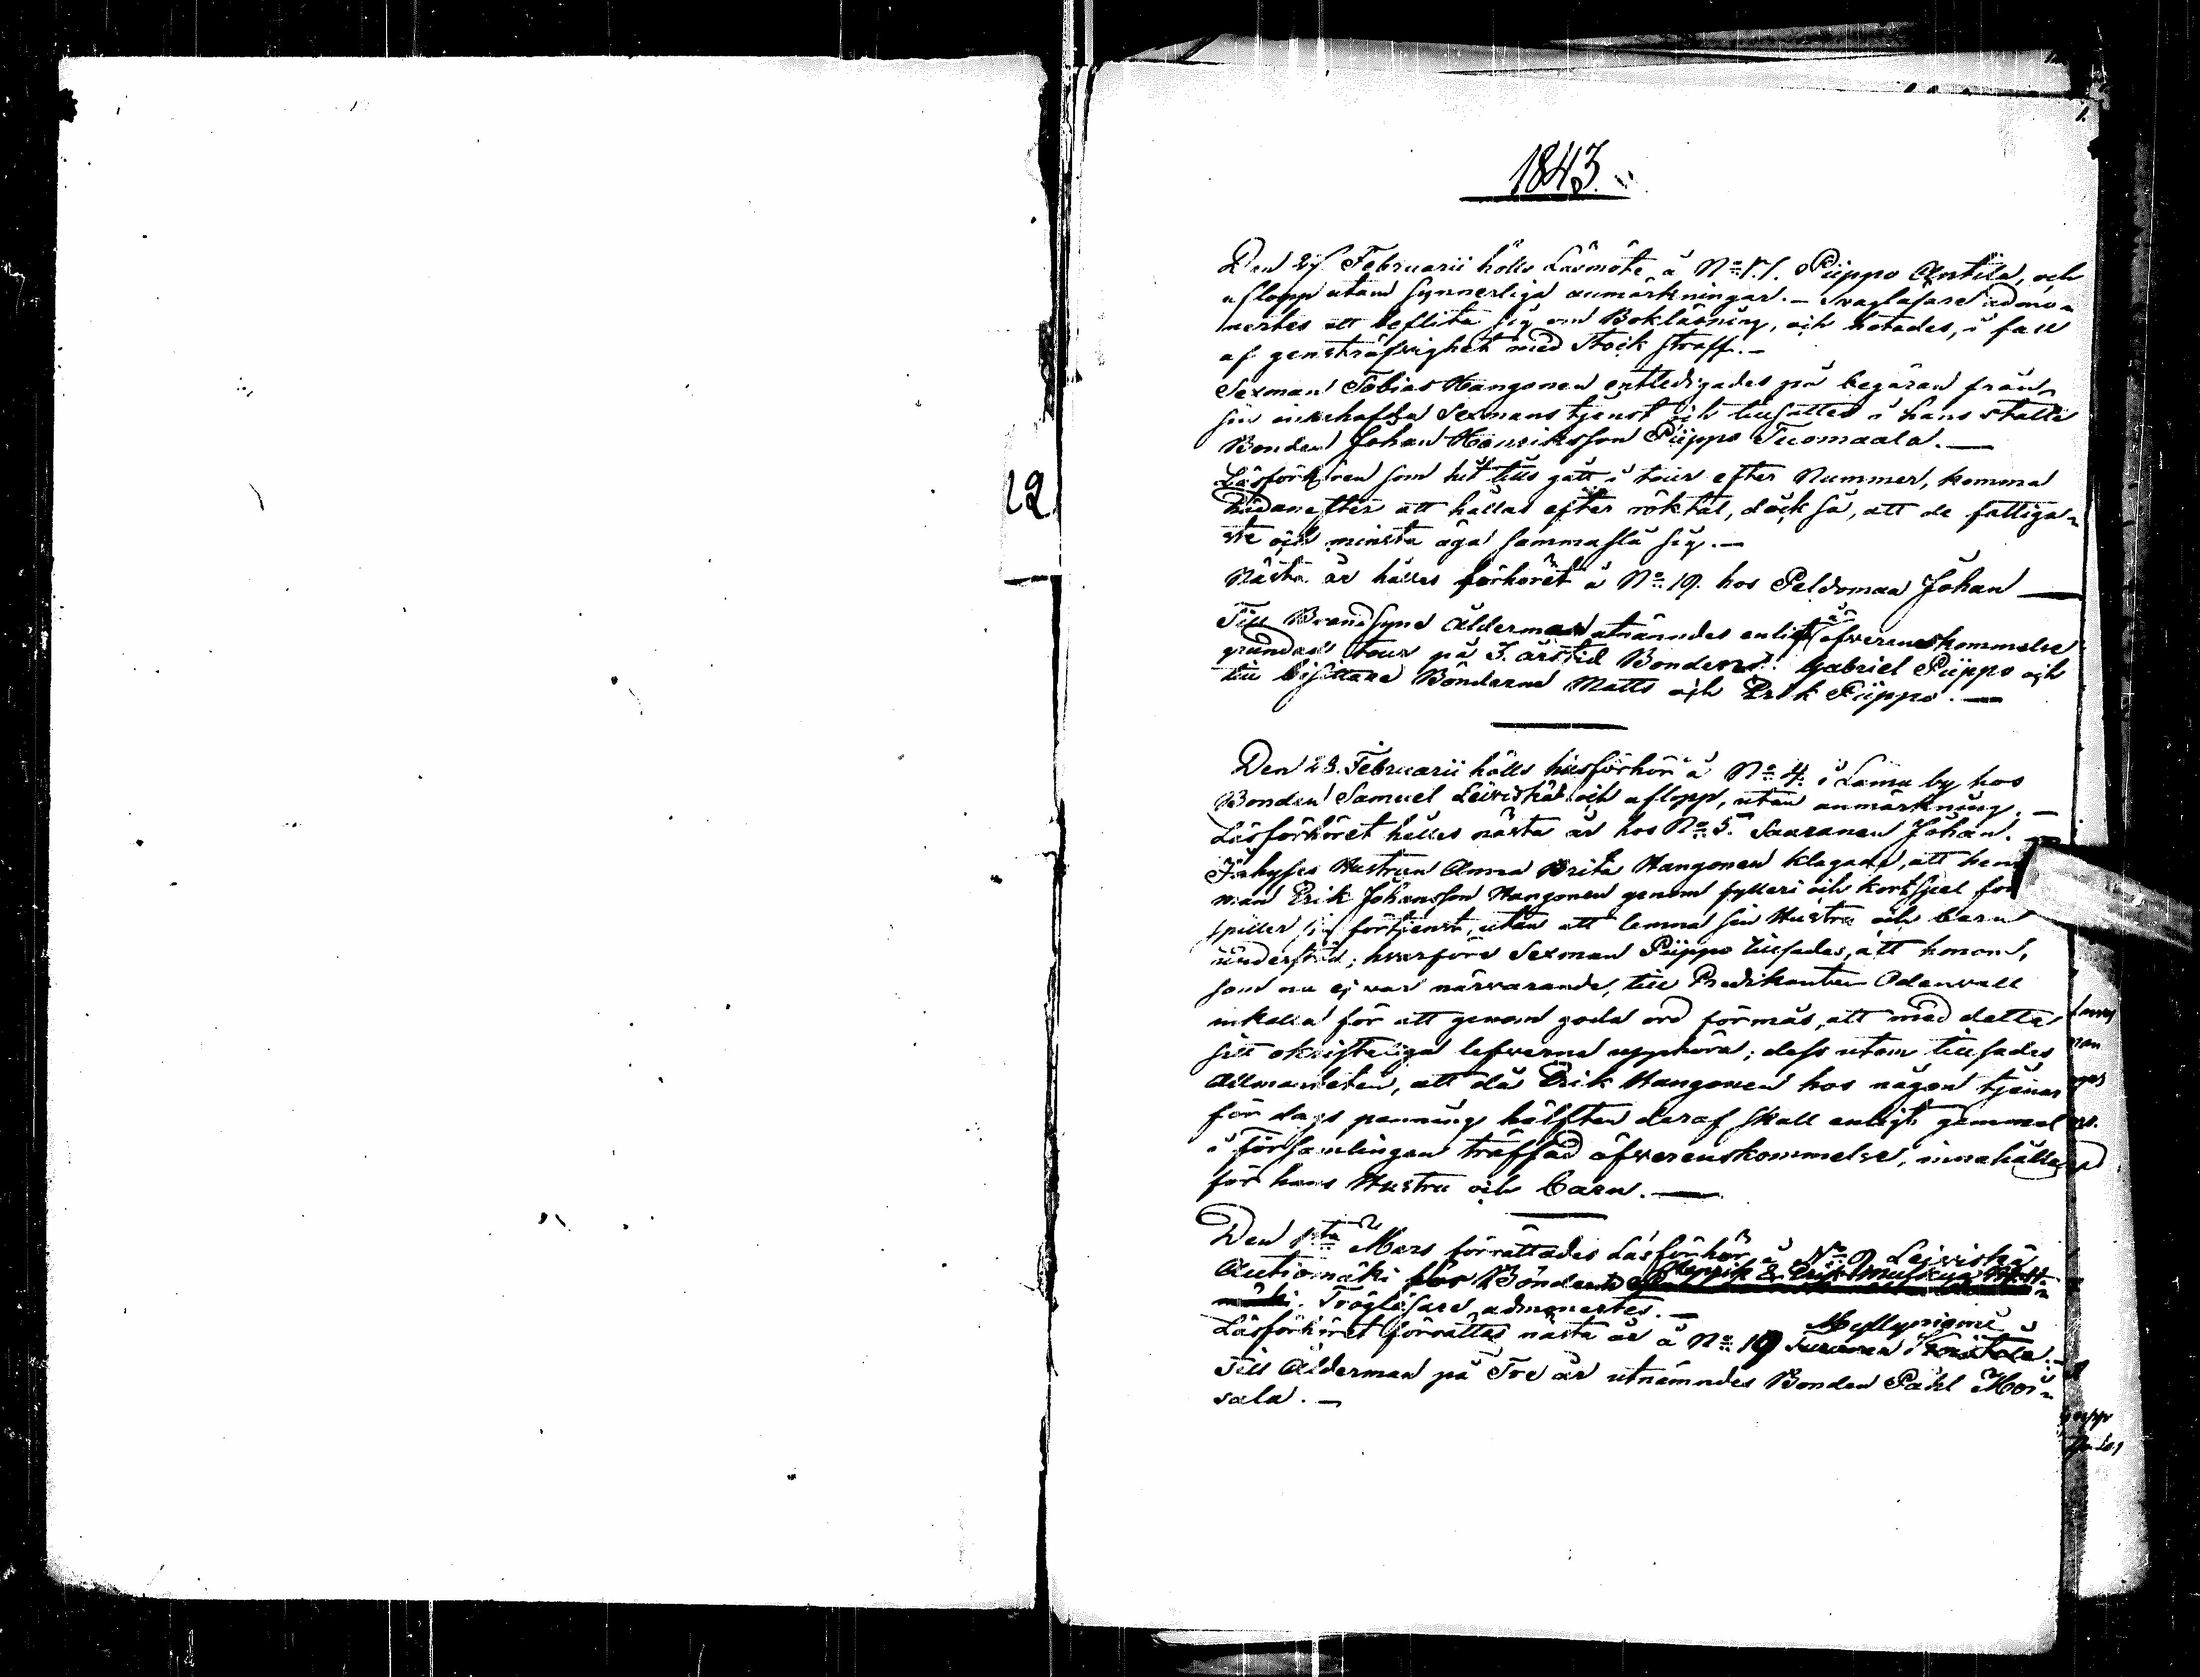 1.
1843.
Den 27 Februarii hölls Läsmöte å No 1. Piippo Antila, och
aflopp utan synnerliga anmärkningar. – Svagläsare admo-
nertes att beflita sig om Bokläsning, och hotades, i fall
af gensträfvighet med Stock straff. –
Sexman Tobias Hangonen entledigades på begäran från
sin innehafda Sexmans tjenst och tillsattes i hans ställe
Bonden Johan Henriksson Piippo Tuomaala. –
Läsförhören som hit tills gått i tour efter Nummer, komma
hädanefter att hållas efter röktal, dock så, att de fattiga-
ste och minsta äga sammaslå sig. –
Nästa år hålles förhöret å No 19. hos Peldomaa Johan –
Till Brandsyns Ålderman utnämndes enligt å öfverenskommelse
grundad tour på 3. årstid Bonden Gabriel Piippo och
till bisittare Bönderne Matts och Erik Piippo. –
Den 28. Februarii hölls husförhör å No 4. i Lamu by hos
Bonden Samuel Leiviskä och aflopp, utan anmärkning. –
Läsförhöret hålles nästa år hos No 5. Saaranen Johan. –
Inhyses Hustrun Anna Brita Hangonen klagade, att hen
man Erik Johansson Hangonen genom fylleri och kortspel för
spiller sin förtjenst, utan att lemna sin Hustru och barn
understöd; hvarföre Sexman Piippo tillsades, att honom,
som nu ej var närvarande, till Predikanten Odenvall
inkalla för att genom goda ord förmås, att med detta
sitt okristeliga lefverne upphöra; dess utom tillsades
Allmänheten, att då Erik Hangonen hos någon tjenar
för dags penning hälften deraf skall enligt gemensam
i församlingen träffad öfverenskommelse, innehållas
för hans Hustru och barn. –
Den 1sta Mars förrättades Läsförhör å No 9 Leiviskä
Autiomäki hos Bönderne Henrik & Erik
mäki. Trögläsare admonertes. –
Läsförhöret förrättas nästa år å No 19 Myllyniemi
Till Ålderman på Tre år utnämndes Bonden Påhl Moi-
sala. –
12